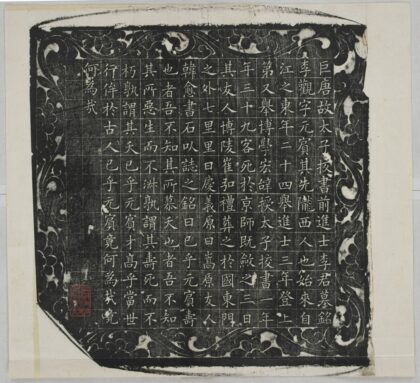 巨唐故太子挍書前進士李君墓銘
李觀字元賓其先隴西人也始來自
江之東年二十四舉進士三年登上
第又舉博學宏辭授太子挍書一年
年三十九客死於京師既斂之三日
其友人博陵崔和禮葬之於國東門
之外七里里曰慶義原曰嵩原友人
韓愈書石以誌之銘曰已乎元賓壽
也者吾不知其所慕夭也者吾不知
其所惡生而不淑孰謂其壽死而不
朽孰謂其夭已乎元賓才高乎當世
行侔於古人已乎元賓竟何為哉竟
何為哉